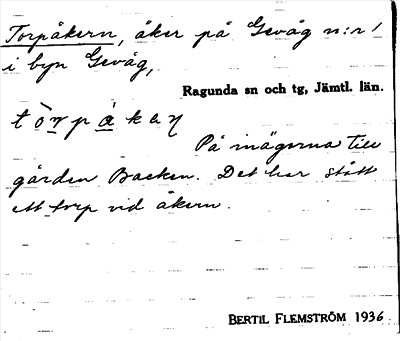 Torpåkern, åker på Gevåg n:r 1
i byn Gevåg,
Ragunda sn och tg, Jämtl. län.
På inägorna till
gården Backen. Det har stått
ett torp vid åkern.
BERTIL FLEMSTRÖM 1936